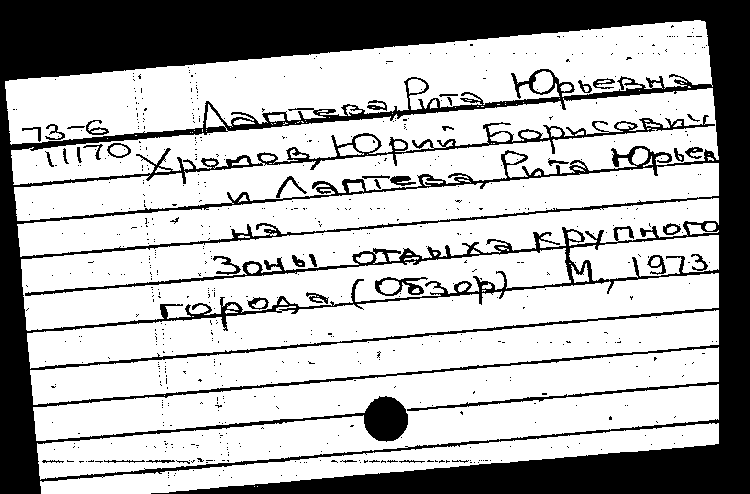 Лаптева, Рита Юрьевна
73-6
11170 Хромов, Юрий Борисович
и Лаптева, Рита Юрьев
на
Зоны отдыха крупного
города (Обзор) М., 1973